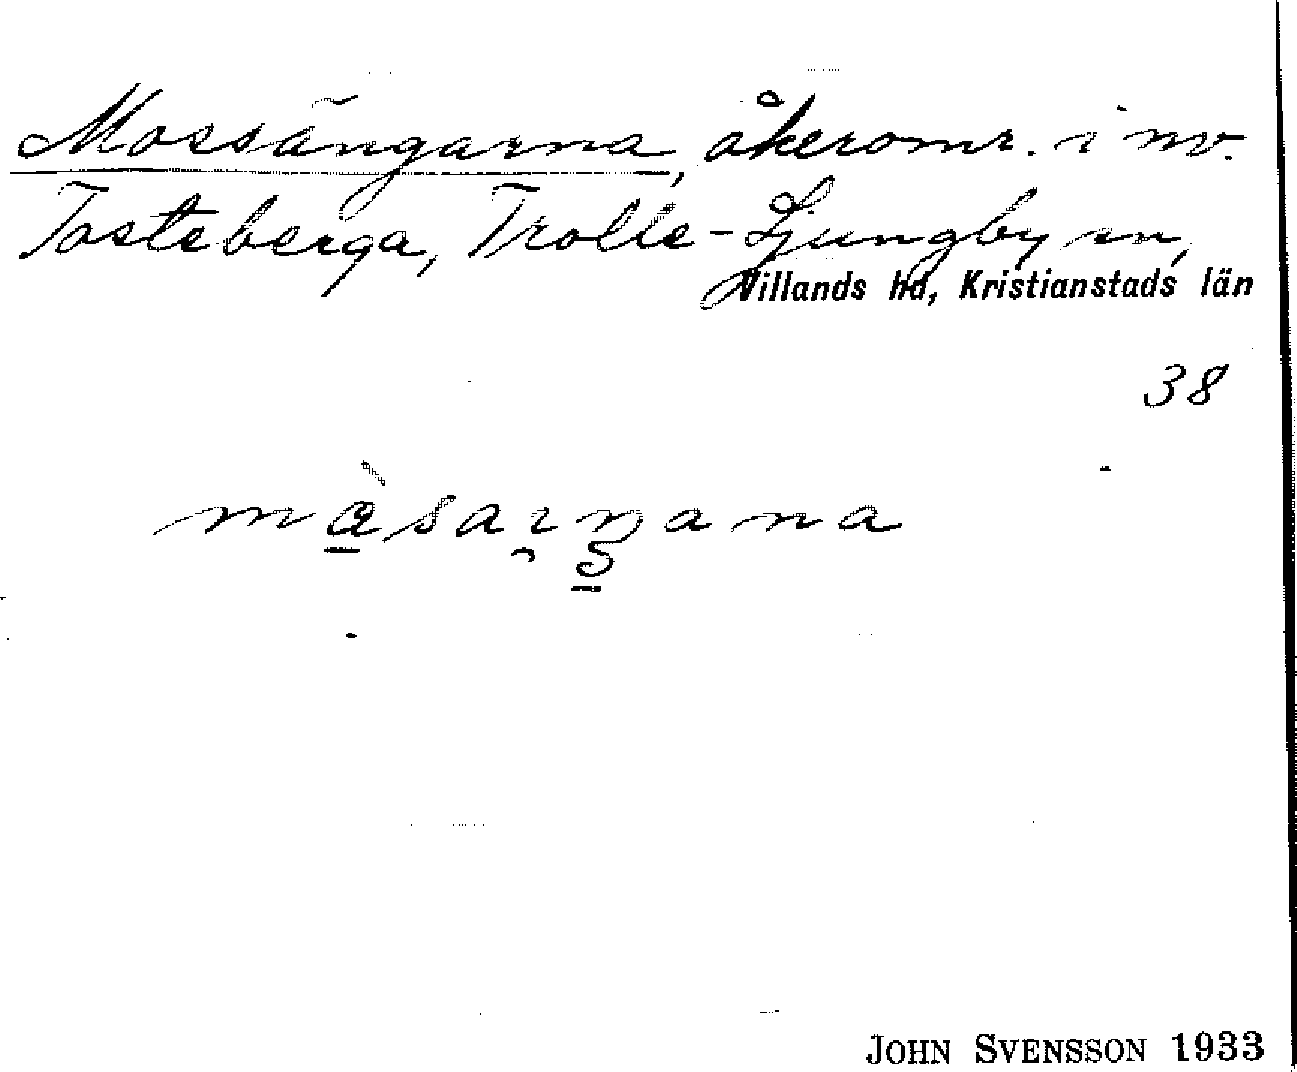 Mossängarna, åkeromr. i nv.
Tosteberga, Trolle-Ljungby sn,
Villands hd, Kristianstads län
38
JOHN SVENSSON 1933